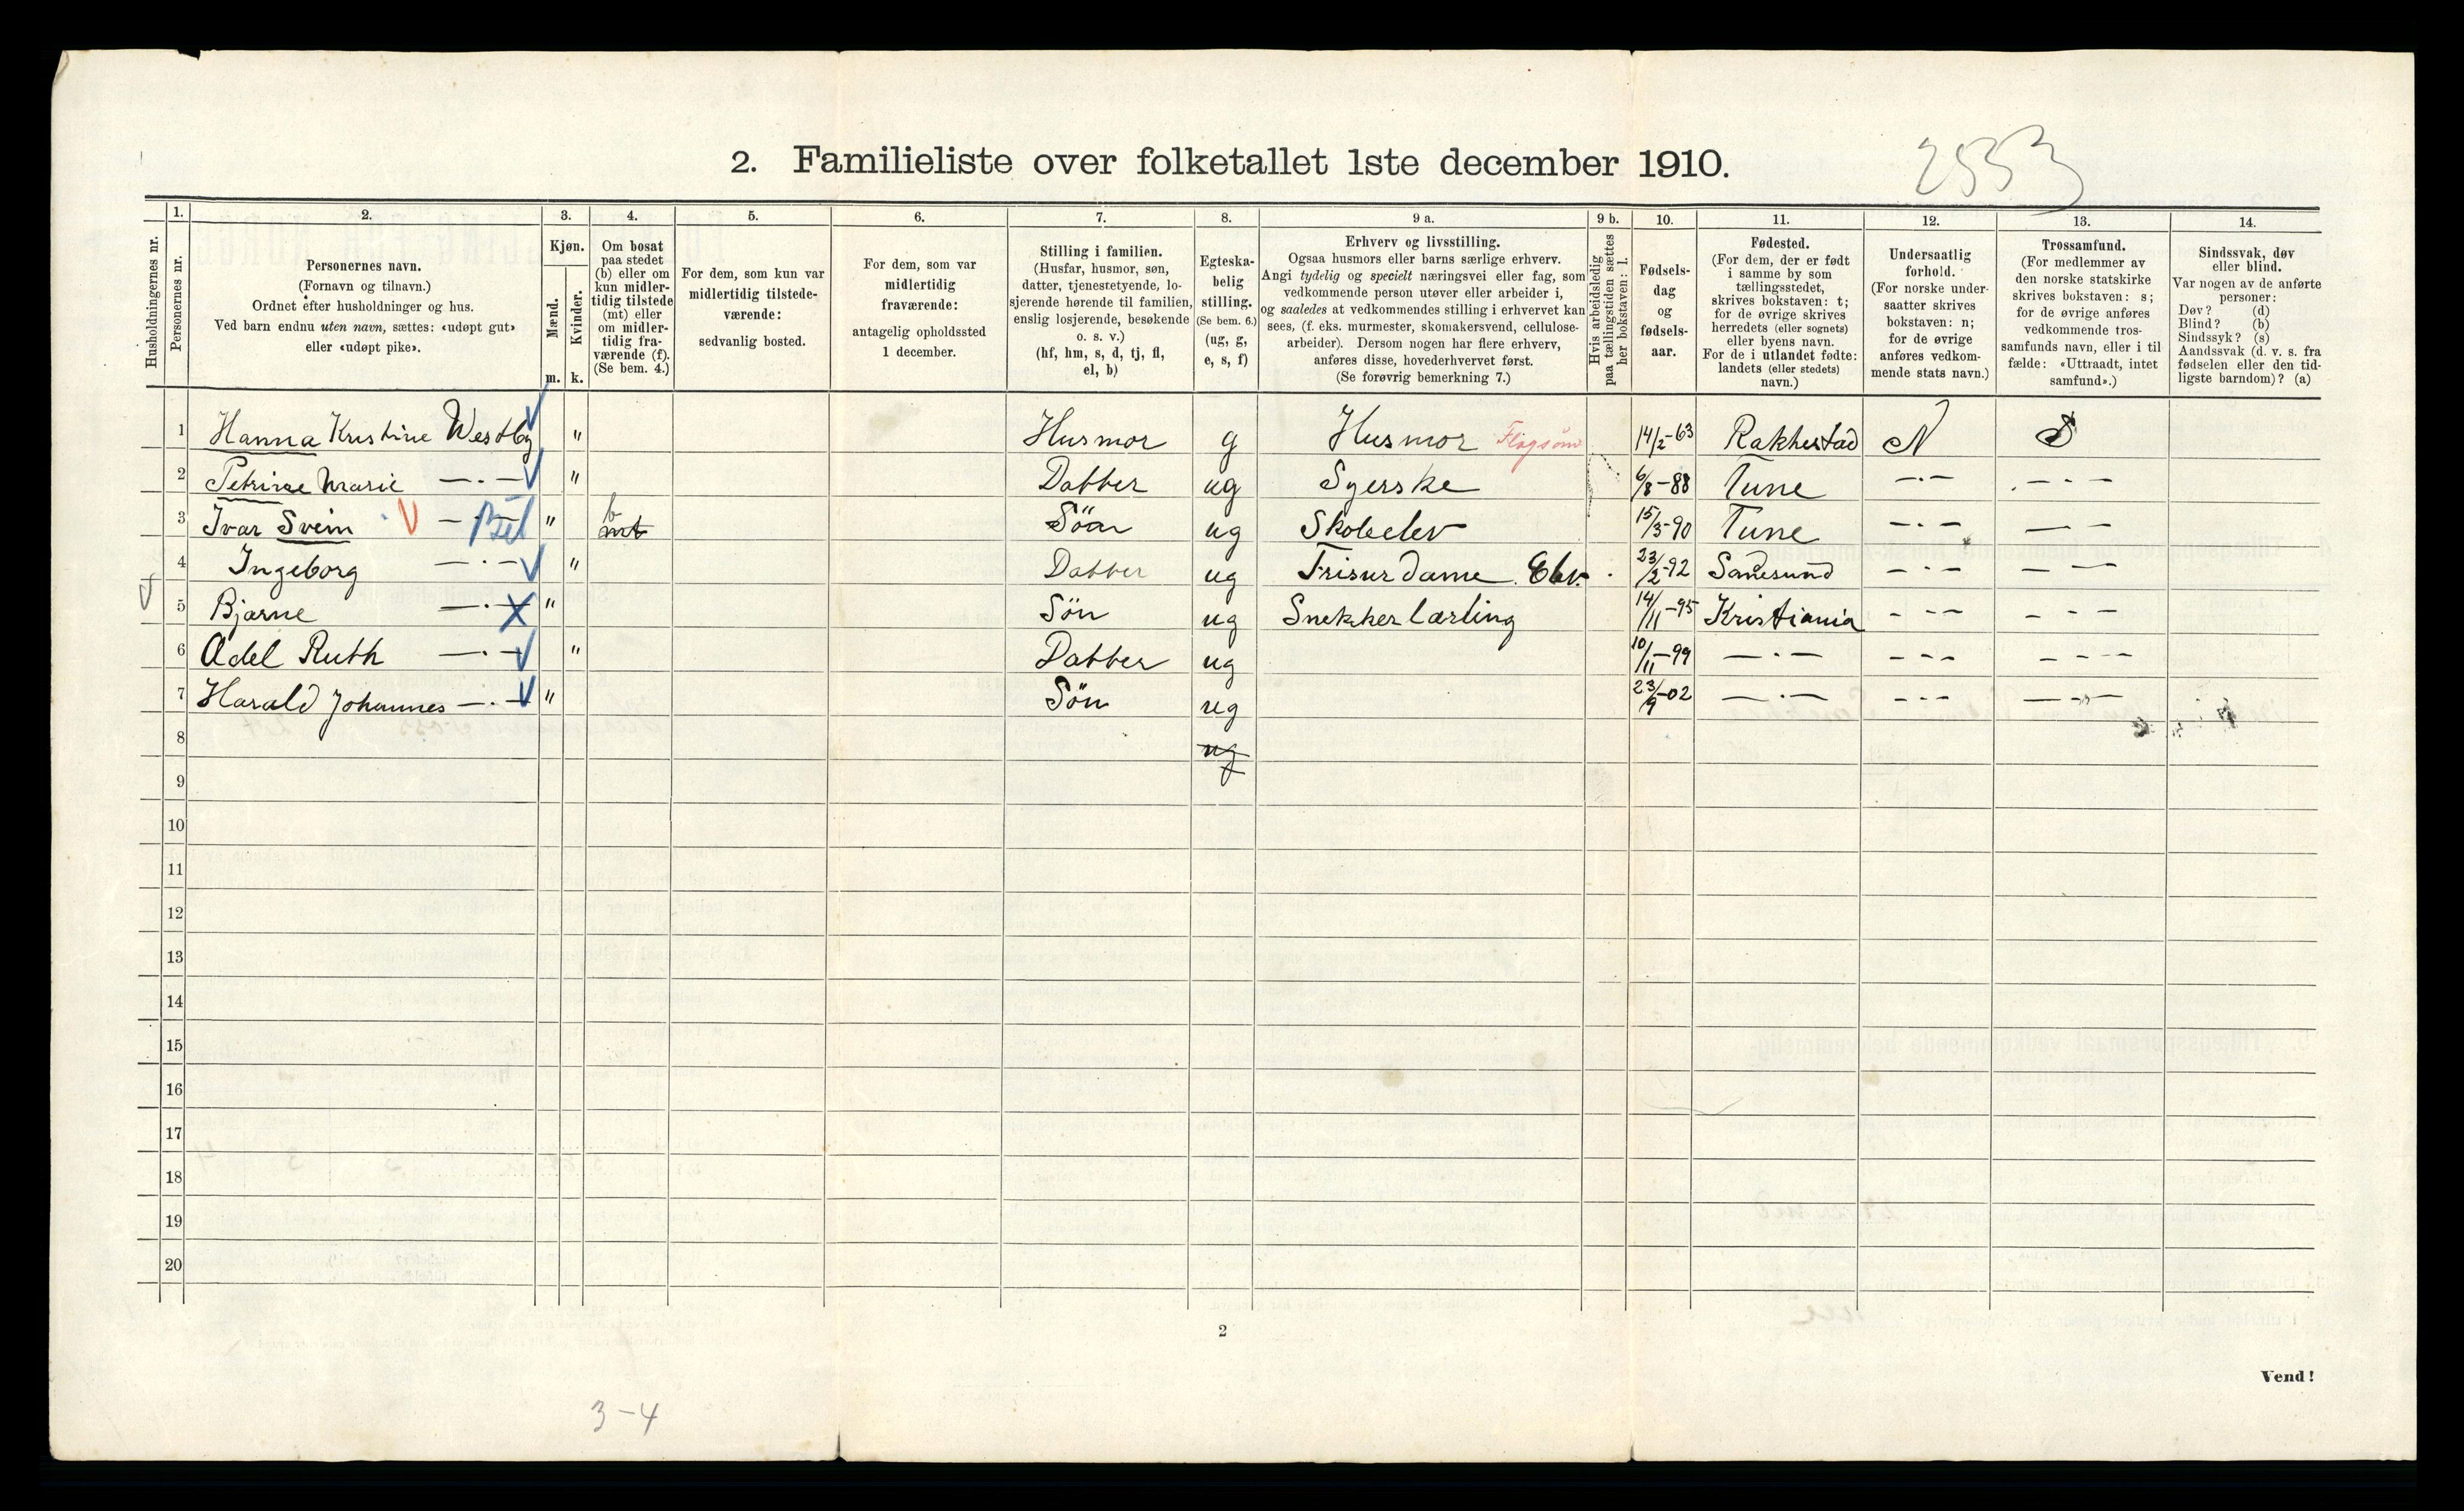 2533
2. Familieliste over folketallet 1ste december 1910.
1. 2. 3. 4. 5. 6. 7. 8. 9 a. 9 b. 10. 11. 12. 13. 14.
Husholdningernes nr.
Personernes nr.
Personernes navn.
(Fornavn og tilnavn.)
Ordnet efter husholdninger og hus.
Ved barn endnu uten navn, sættes: «udøpt gut»
eller «udøpt pike».
Kjøn.
Mænd.
Kvinder.
m. k.
Om bosat
paa stedet
(b) eller om
kun midler-
tidig tilstede
(mt) eller
om midler-
tidig fra-
værende (f).
(Se bem. 4.)
For dem, som kun var
midlertidig tilstede-
værende:
sedvanlig bosted.
For dem, som var
midlertidig
fraværende:
antagelig opholdssted
1 december.
Stilling i familien.
(Husfar, husmor, søn,
datter, tjenestetyende, lo-
sjerende hørende til familien,
enslig losjerende, besøkende
o. s. v.)
(hf, hm, s, d, tj, fl,
el, b)
Egteska-
belig
stilling.
(Se bem. 6.)
(ug, g,
e, s, f)
Erhverv og livsstilling.
Ogsaa husmors eller barns særlige erhverv.
Angi tydelig og specielt næringsvei eller fag, som
vedkommende person utøver eller arbeider i,
og saaledes at vedkommendes stilling i erhvervet kan
sees, (f. eks. murmester, skomakersvend, cellulose-
arbeider). Dersom nogen har flere erhverv,
anføres disse, hovederhvervet først.
(Se forøvrig bemerkning 7.)
Hvis arbeidsledig
paa tællingstiden sættes
her bokstaven: l.
Fødsels-
dag
og
fødsels-
aar.
Fødested.
(For dem, der er født
i samme by som
tællingsstedet,
skrives bokstaven: t;
for de øvrige skrives
herredets (eller sognets)
eller byens navn.
For de i utlandet fødte:
landets (eller stedets)
navn.)
Undersaatlig
forhold.
(For norske under-
saatter skrives
bokstaven: n;
for de øvrige
anføres vedkom-
mende stats navn.)
Trossamfund.
(For medlemmer av
den norske statskirke
skrives bokstaven: s;
for de øvrige anføres
vedkommende tros-
samfunds navn, eller i til
fælde: «Uttraadt, intet
samfund».)
Sindssvak, døv
eller blind.
Var nogen av de anførte
personer:
Døv? (d)
Blind? (b)
Sindssyk? (s)
Aandssvak (d. v. s. fra
fødselen eller den tid-
ligste barndom)? (a)
1 Hanna Kristine Westby " Husmor g Husmor 14/2-63 Rakkestad N S
2 Petrine Marie —.— " Datter ug Syerske 6/8-88 Tune —.— .—.—
3 Ivar Svein — " b mt Søn ug Skoleelev 15/3-90 Tune —.— —.—
4 Ingeborg —.— " Datter ug Frisurdame Elev. 23/2-92 Sanesund —.— — —
5 Bjarne —.— " Søn ug Snekker lærling 14/11-95 Kristiania - -- - --
6 Adel Ruth —.— " Datter ug 10/11-99 —.— --- ----
7 Harald Johannes —.— " Søn ug 23/9-02 —.— --- —"—
8 ug
9
10
11
12
13
14
15
16
17
18
19
20
2
Vend!
3-4